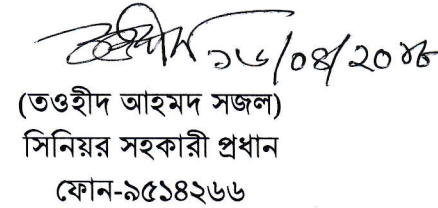 তওহীদ ১৬/০৪/২০১৮
(তওহীদ আহমদ সজল)
সিনিয়র সহকারী প্রধান
ফোন-৯৫১৪২৬৬